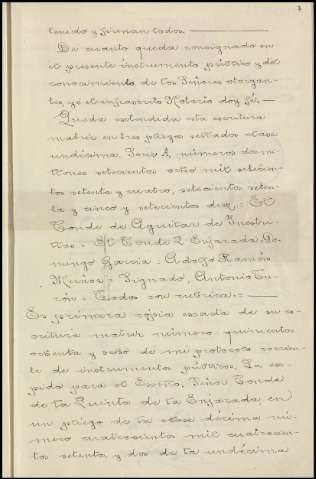 tenido y firman todos.
De cuanto queda consignado en
el presente instrumento público y del
conocimiento de los Señores otorgan-
tes, yo el infrascrito Notario doy fé.—
Queda estendida esta escritura
matriz en tres pliegos sellados clase
undécima, Serie A, números dos mi-
llones setecientos ocho mil setecien-
tos setenta y cuatro, setecientos seten-
ta y cinco y setecientos diez = El
Conde de Aguilar de Inestri-
llas = El Conde Q. Enjarada, Do-
mingo García = Adolfo Ramón
Muñoz = Signado, Antonio Tu-
rón = Todos con rúbrica =
Es primera cópia exacta de su es-
critura matriz número quinientos
ochenta y ocho de mi protocolo corrien-
te de instrumentos públicos. La es-
pido para el Excmo. Señor Conde
de la Quinta de la Enjarada, en
un pliego de la clase décima nú-
mero cuatrocientos mil cuatrocien-
tos setenta y dos de la undécima